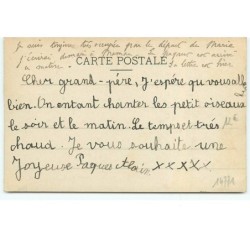 Je suis toujours très occupée par le départ de Marie
J'écrirai demain à
CARTE POSTALE
la lettre est bien
Cher grand-père, J'espère qu vous all
bien. On entant chanter les petit oiseaux
le soir et le matin. Le temps et trés
chaud. Je vous souhaite une
Joyeuse Paques Alain xxxxx